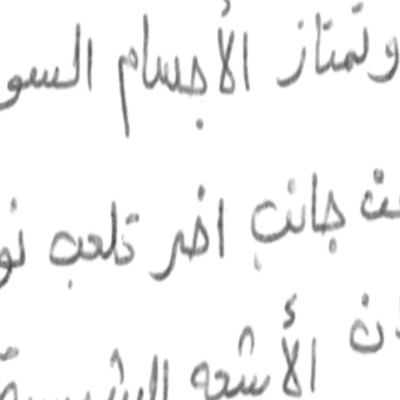 وتمتاز الأجسام السو
من جانب اخر تلعب نو
ان الأشعه الشمسية